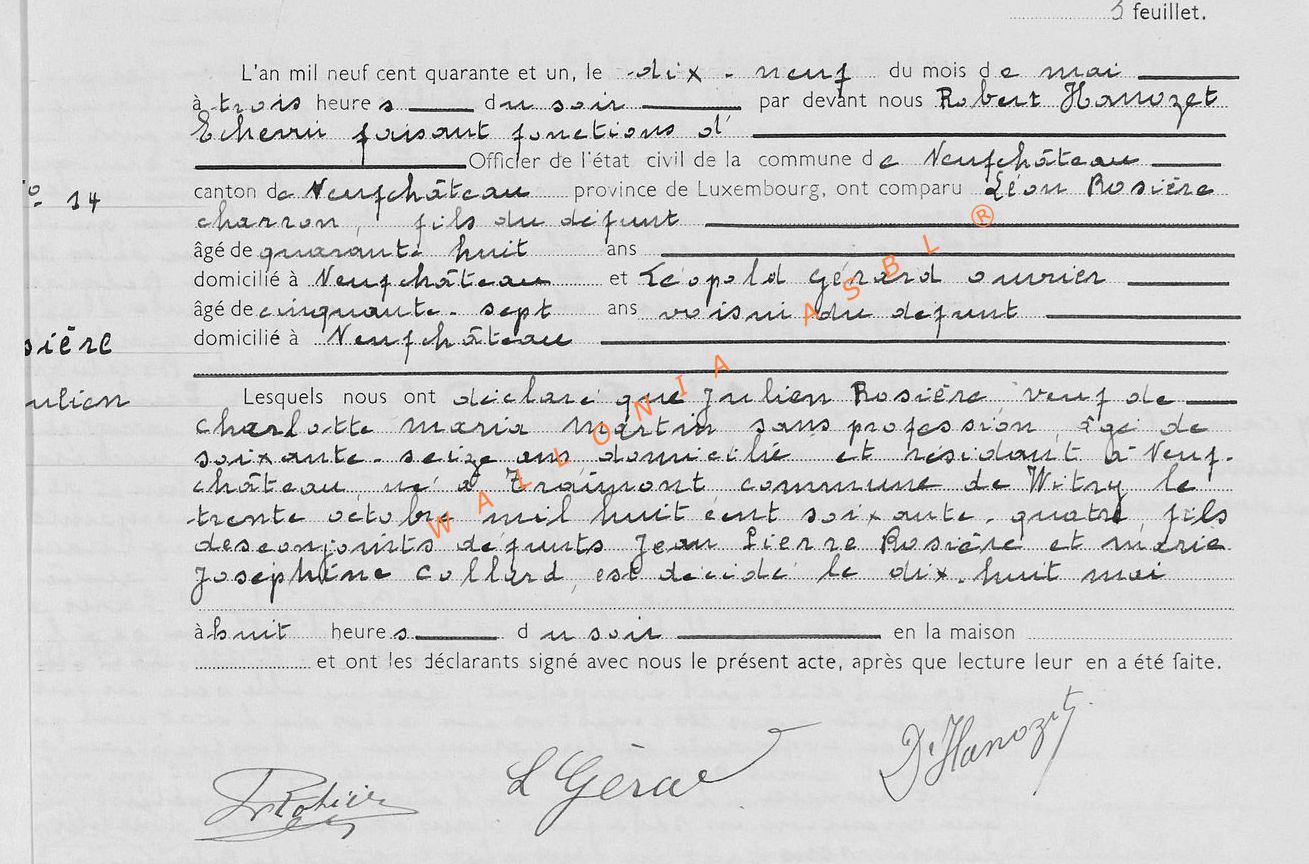 5 feuillet.
L'an mil neuf cent quarante et un, le dix-neuf du mois de mai
à trois heures du soir par devant nous Robert Hanozet
Echevin faisant fonctions d'
Officier de l'état civil de la commune de Neufchâteau
canton de Neufchâteau province de Luxembourg, ont comparu Léon Rosière
N° 14
charron, fils du défunt
âgé de quarante huit ans
domicilié à Neufchâteau et Léopold Gérard ouvrier
âgé de cinquante-sept ans voisin du défunt
domicilié à Neufchâteau
sière
Lesquels nous ont déclaré que Julien Rosière veuf de
ulien
Charlotte Maria Martin sans profession, âgé de
soixante-seize ans, domicilié et résidant à Neuf-
château, né à Traimont commune de Witry le
trente octobre mil huit cent soixante-quatre, fils
des conjoints défunts Jean Pierre Rosière et Marie
Josephine Collard, est décédé le dix-huit mai
à huit heures du soir en la maison
et ont les déclarants signé avec nous le présent acte, après que lecture leur en a été faite.
L Gérard
Hanozet
WALLONIA ASBL ®